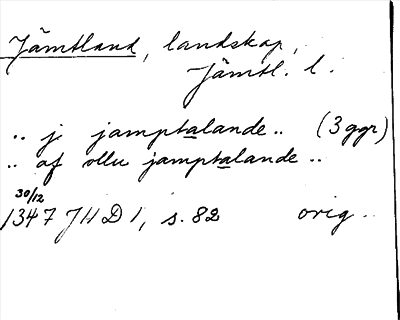 Jämtland, landskap,
Jämtl. l.
.. j jamptalande .. (3 ggr)
.. af ollu jamptalande ..
30/12
1347 JHD 1, s. 82 orig.